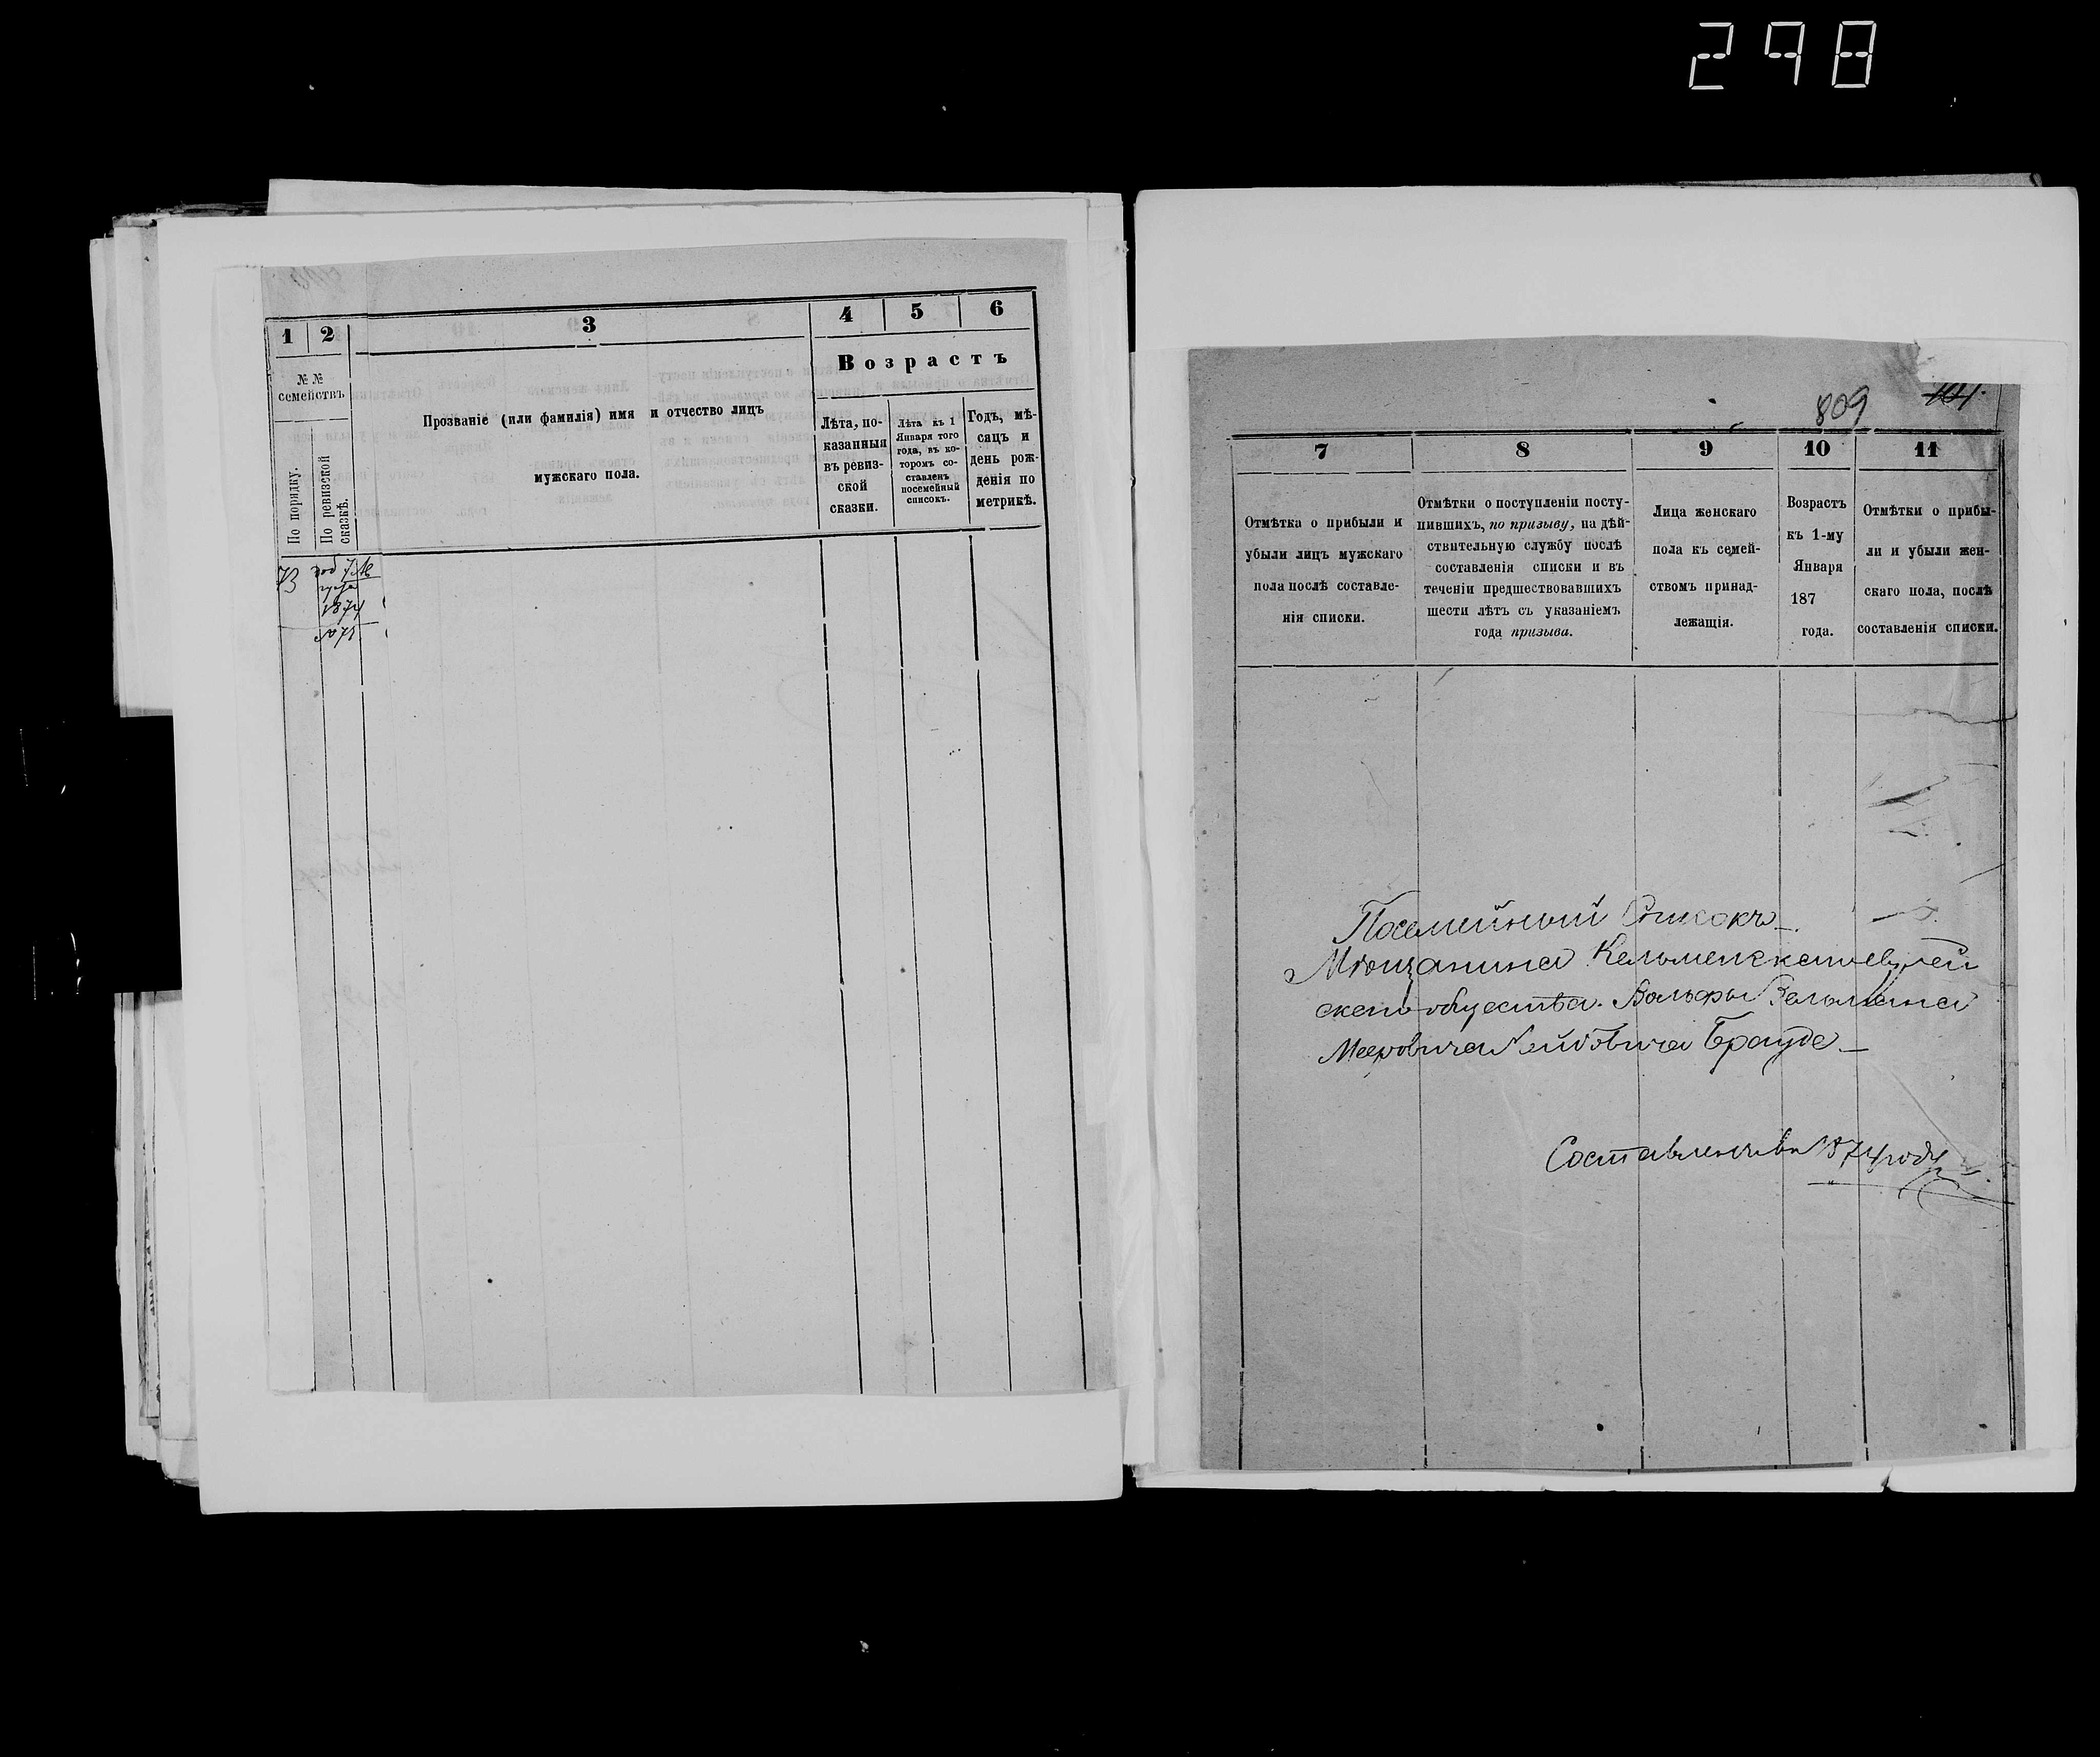 298
1 2 3 4 5 6
№№ семействъ
По порядку.
По ревизской сказкѣ.
Прозваніе (или фамилія) имя и отчество лицъ
мужскаго пола.
Возрастъ
Лѣта, по-
казанныя
въ ревиз-
ской
сказки.
Лѣта къ 1
Января того
года, въ ко-
торомъ со-
ставленъ
посемейный
списокъ.
Годъ, мѣ-
сяцъ и
день рож-
денія по
метрикѣ.
809
7 8 9 10 11
Отмѣтка о прибыли и
убыли лицъ мужскаго
пола послѣ составле-
нія списки.
Отмѣтки о поступленіи посту-
пившихъ, по призыву, на дѣй-
ствительную службу послѣ
составленія списки и въ
теченіи предшествовавшихъ
шести лѣтъ съ указаніемъ
года призыва.
Лица женскаго
пола къ семей-
ствомъ принад-
лежащія.
Возрастъ
къ 1-му
Января
187
года.
Отмѣтки о прибы-
ли и убыли жен-
скаго пола, послѣ
составленія списки.
Посемейный Списокъ
Мѣщанина Кельменскаго еврей
скаго общества. Вольфы Зельмана
Мееровича Лейбовича Брауде
Составленъ въ 1874 году